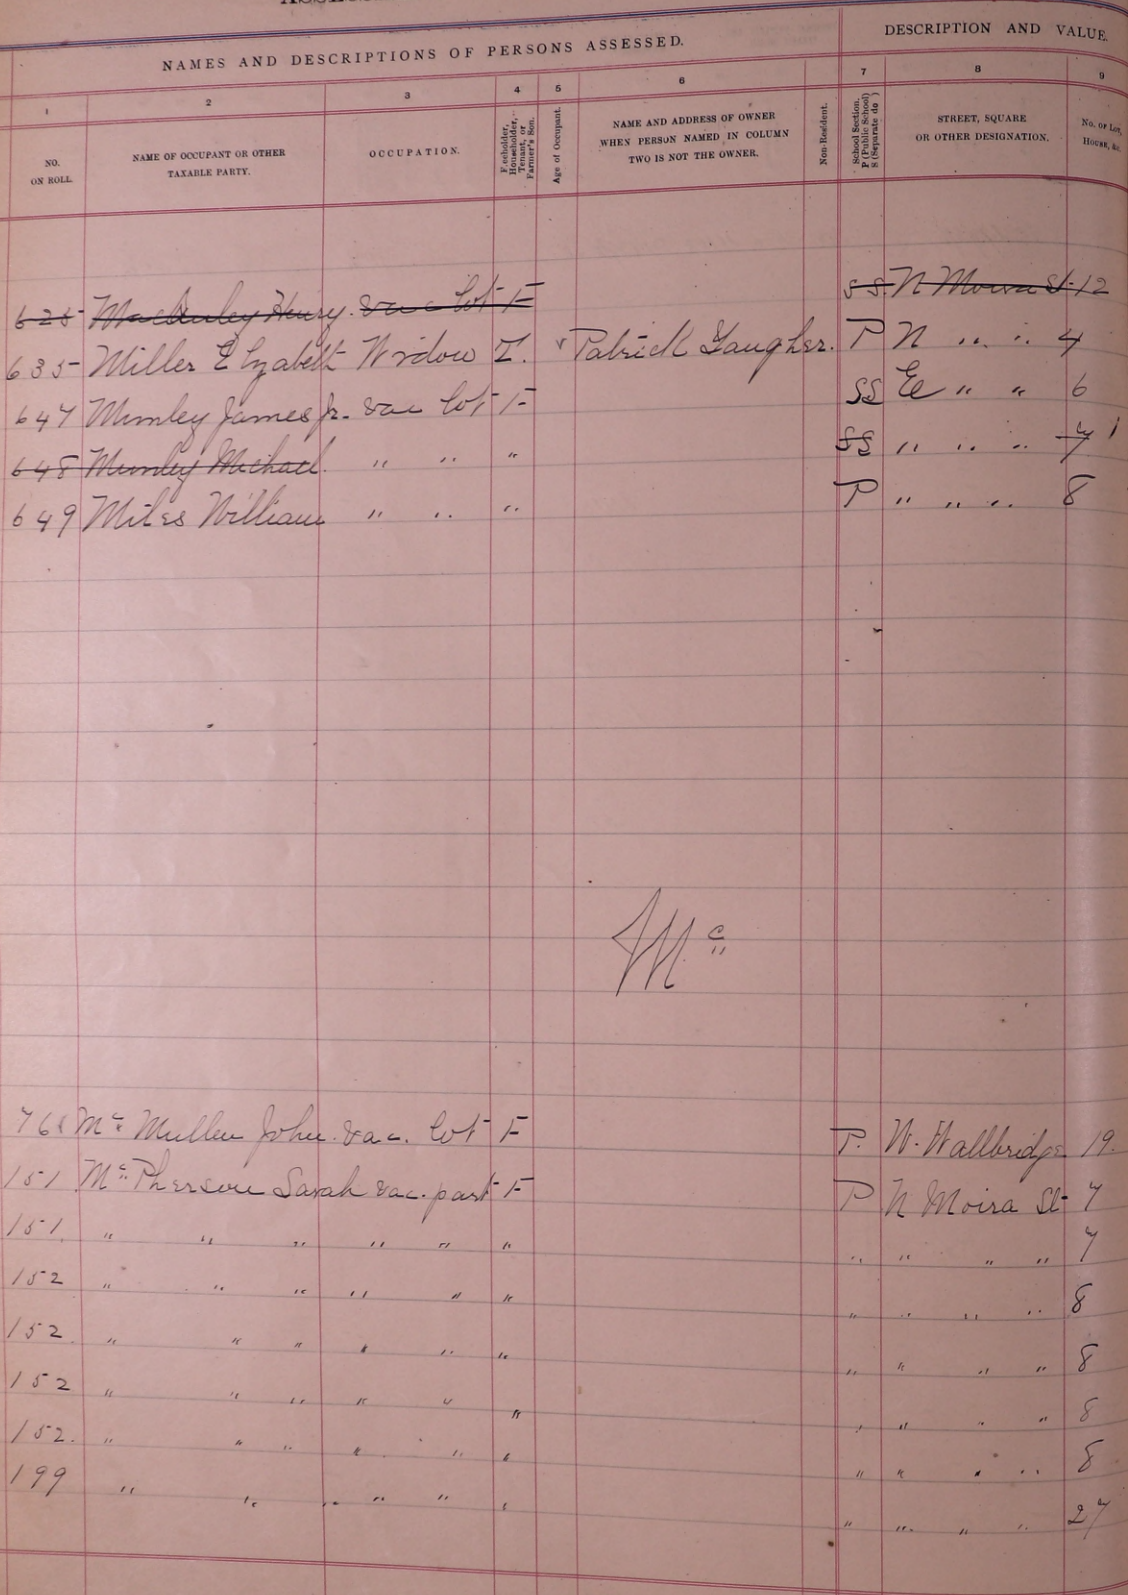 NAMES AND DESCRIPTIONS OF PERSONS ASSESSED. DESCRIPTION AND VALUE.
1 2 3 4 5 6 7 8 9
NO. ON ROLL.
NAME OF OCCUPANT OR OTHER TAXABLE PARTY.
OCCUPATION.
Freeholder, Householder, Tenant, or Farmer's Son.
Age of Occupant.
NAME AND ADDRESS OF OWNER WHEN PERSON NAMED IN COLUMN TWO IS NOT THE OWNER.
Non-Resident.
School Section. P (Public School) S (Separate do )
STREET, SQUARE OR OTHER DESIGNATION.
No. of Lot, House, &c.
625 Henry vac Lot F SS N Moira St 12
635 Miller Elizabeth Widow T. Patrick P N " " 4
647 James Jr. vac Lot F SS E " " 6
648 Michael " " " SS " " " 7
649 Miles William " " " P " " " 8
Mc
Mc Mullen John vac. Lot F P. W. Wallbridge 19
151 Mc Pherson Sarah vac. part F P N Moira St 7
151 " " " " " " " " " " 7
152 " " " " " " " " " " 8
152 " " " " " " " " " " 8
152 " " " " " " " " " " 8
152 " " " " " " " " " " 8
199 " " " " " " " " " " 27